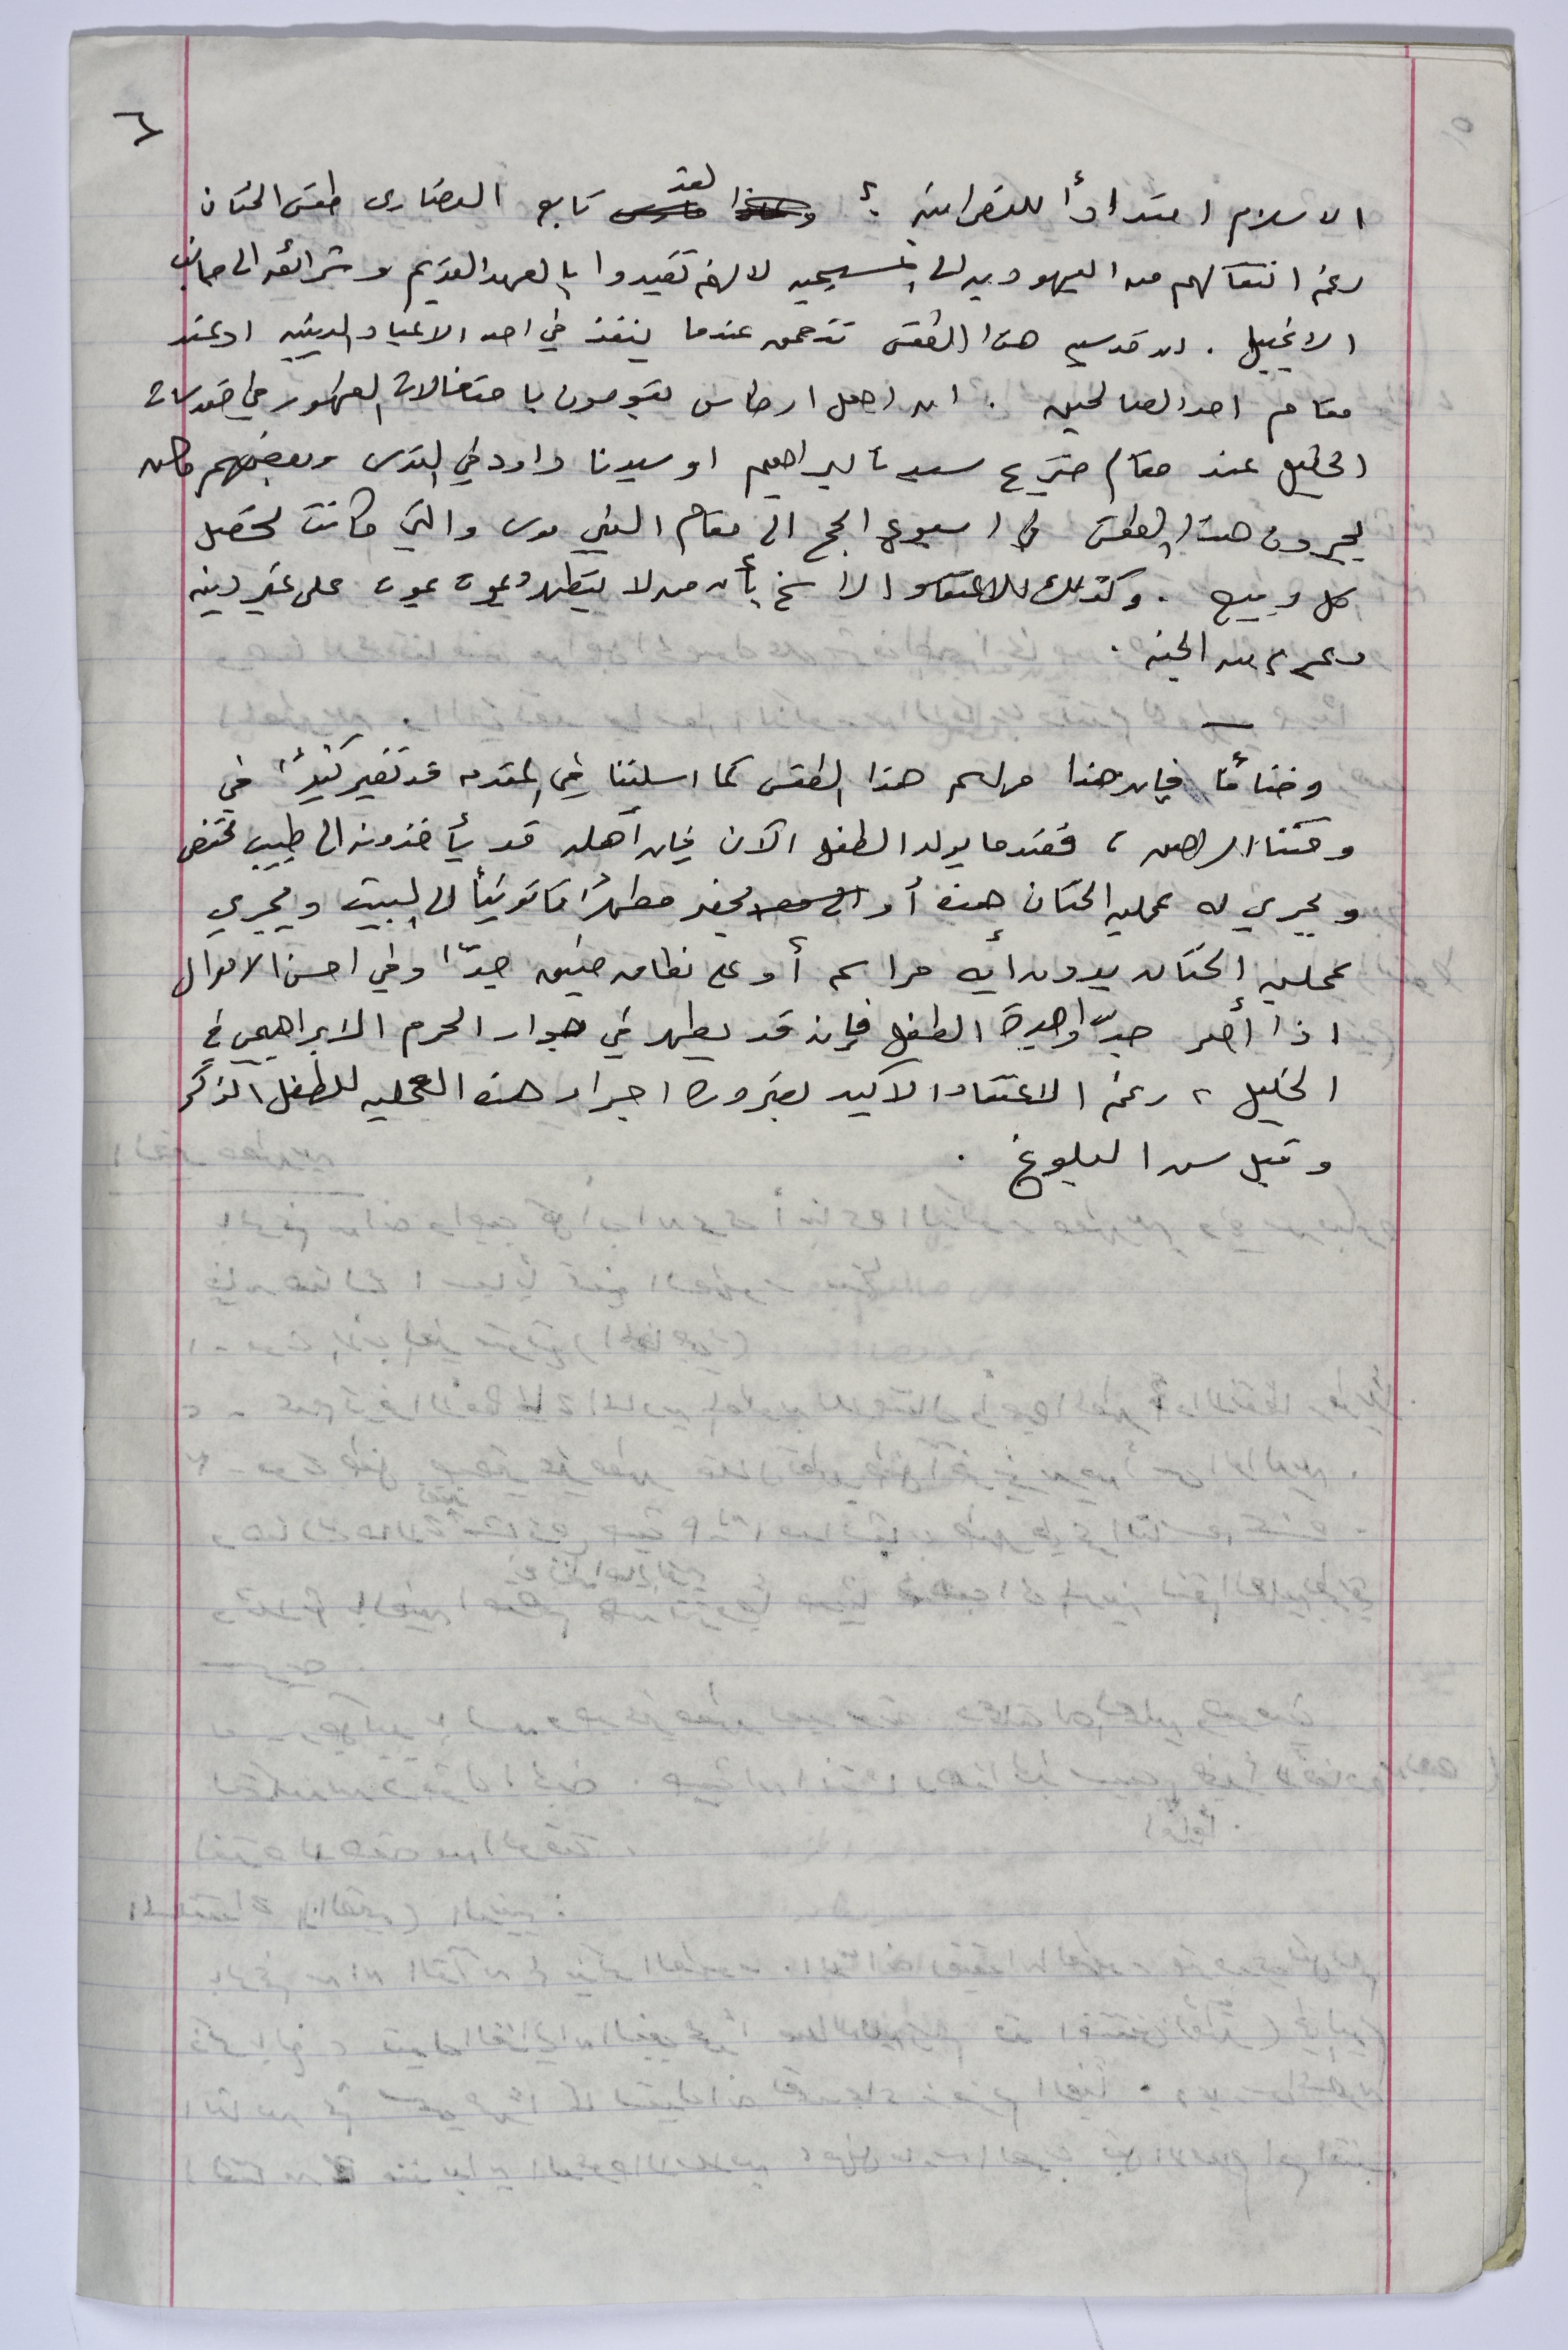 ٦
الاسلام امتداداً للنصرانية ؟ لقد تابع النصارى طقس الختان
رغم انتقالهم من اليهودية الى المسيحيه لانهم تقيدوا بالعهد القديم وشرائعه الى جانب
الانجيل . ان قدسيه هذا الطقس تتعمق عندما ينفذ في احد الاعياد الدينيه او عند
مقام احد الصالحين . ان اهل ارطاس يقومون باحتفالات الطهور في
الخليل عند مقام ضريح سيدنا ابراهيم او سيدنا داود في القدس وبعضهم كان
يجرون هذا الطقس في اسبوع الحج الى مقام النبي موسى والتي كانت تحصل
كل ربيع . وكذلك للاعتقاد الراسخ بأن من لا يتطهر ويموت يموت على غير دينه
ويحرم من الجنه .
وختاماً فإن هذا مراسم هذا الطقس كما اسلفنا في المقدمه قد تغير كثيراً في
وقتنا الراهن ، فعندما يولد الطفل الآن فإن أهله قد يأخذونه الى طبيب مختص
ويجري له عملية الختان هذه أو يحضر مطهراً قانونياً الى البيت ويجري
عملية الختان بدون أيه مراسم أو على نطاق ضيق جدّاً وفي احسن الاحوال
اذا أصر جدّ او جدة الطفل فإنه قد يطهر في جوار الحرم الابراهيمي في
الخليل ، رغم الاعتقاد الاكيد بضرورة اجراء هذه العمليه للطفل الذكر
وقبل سن البلوغ .